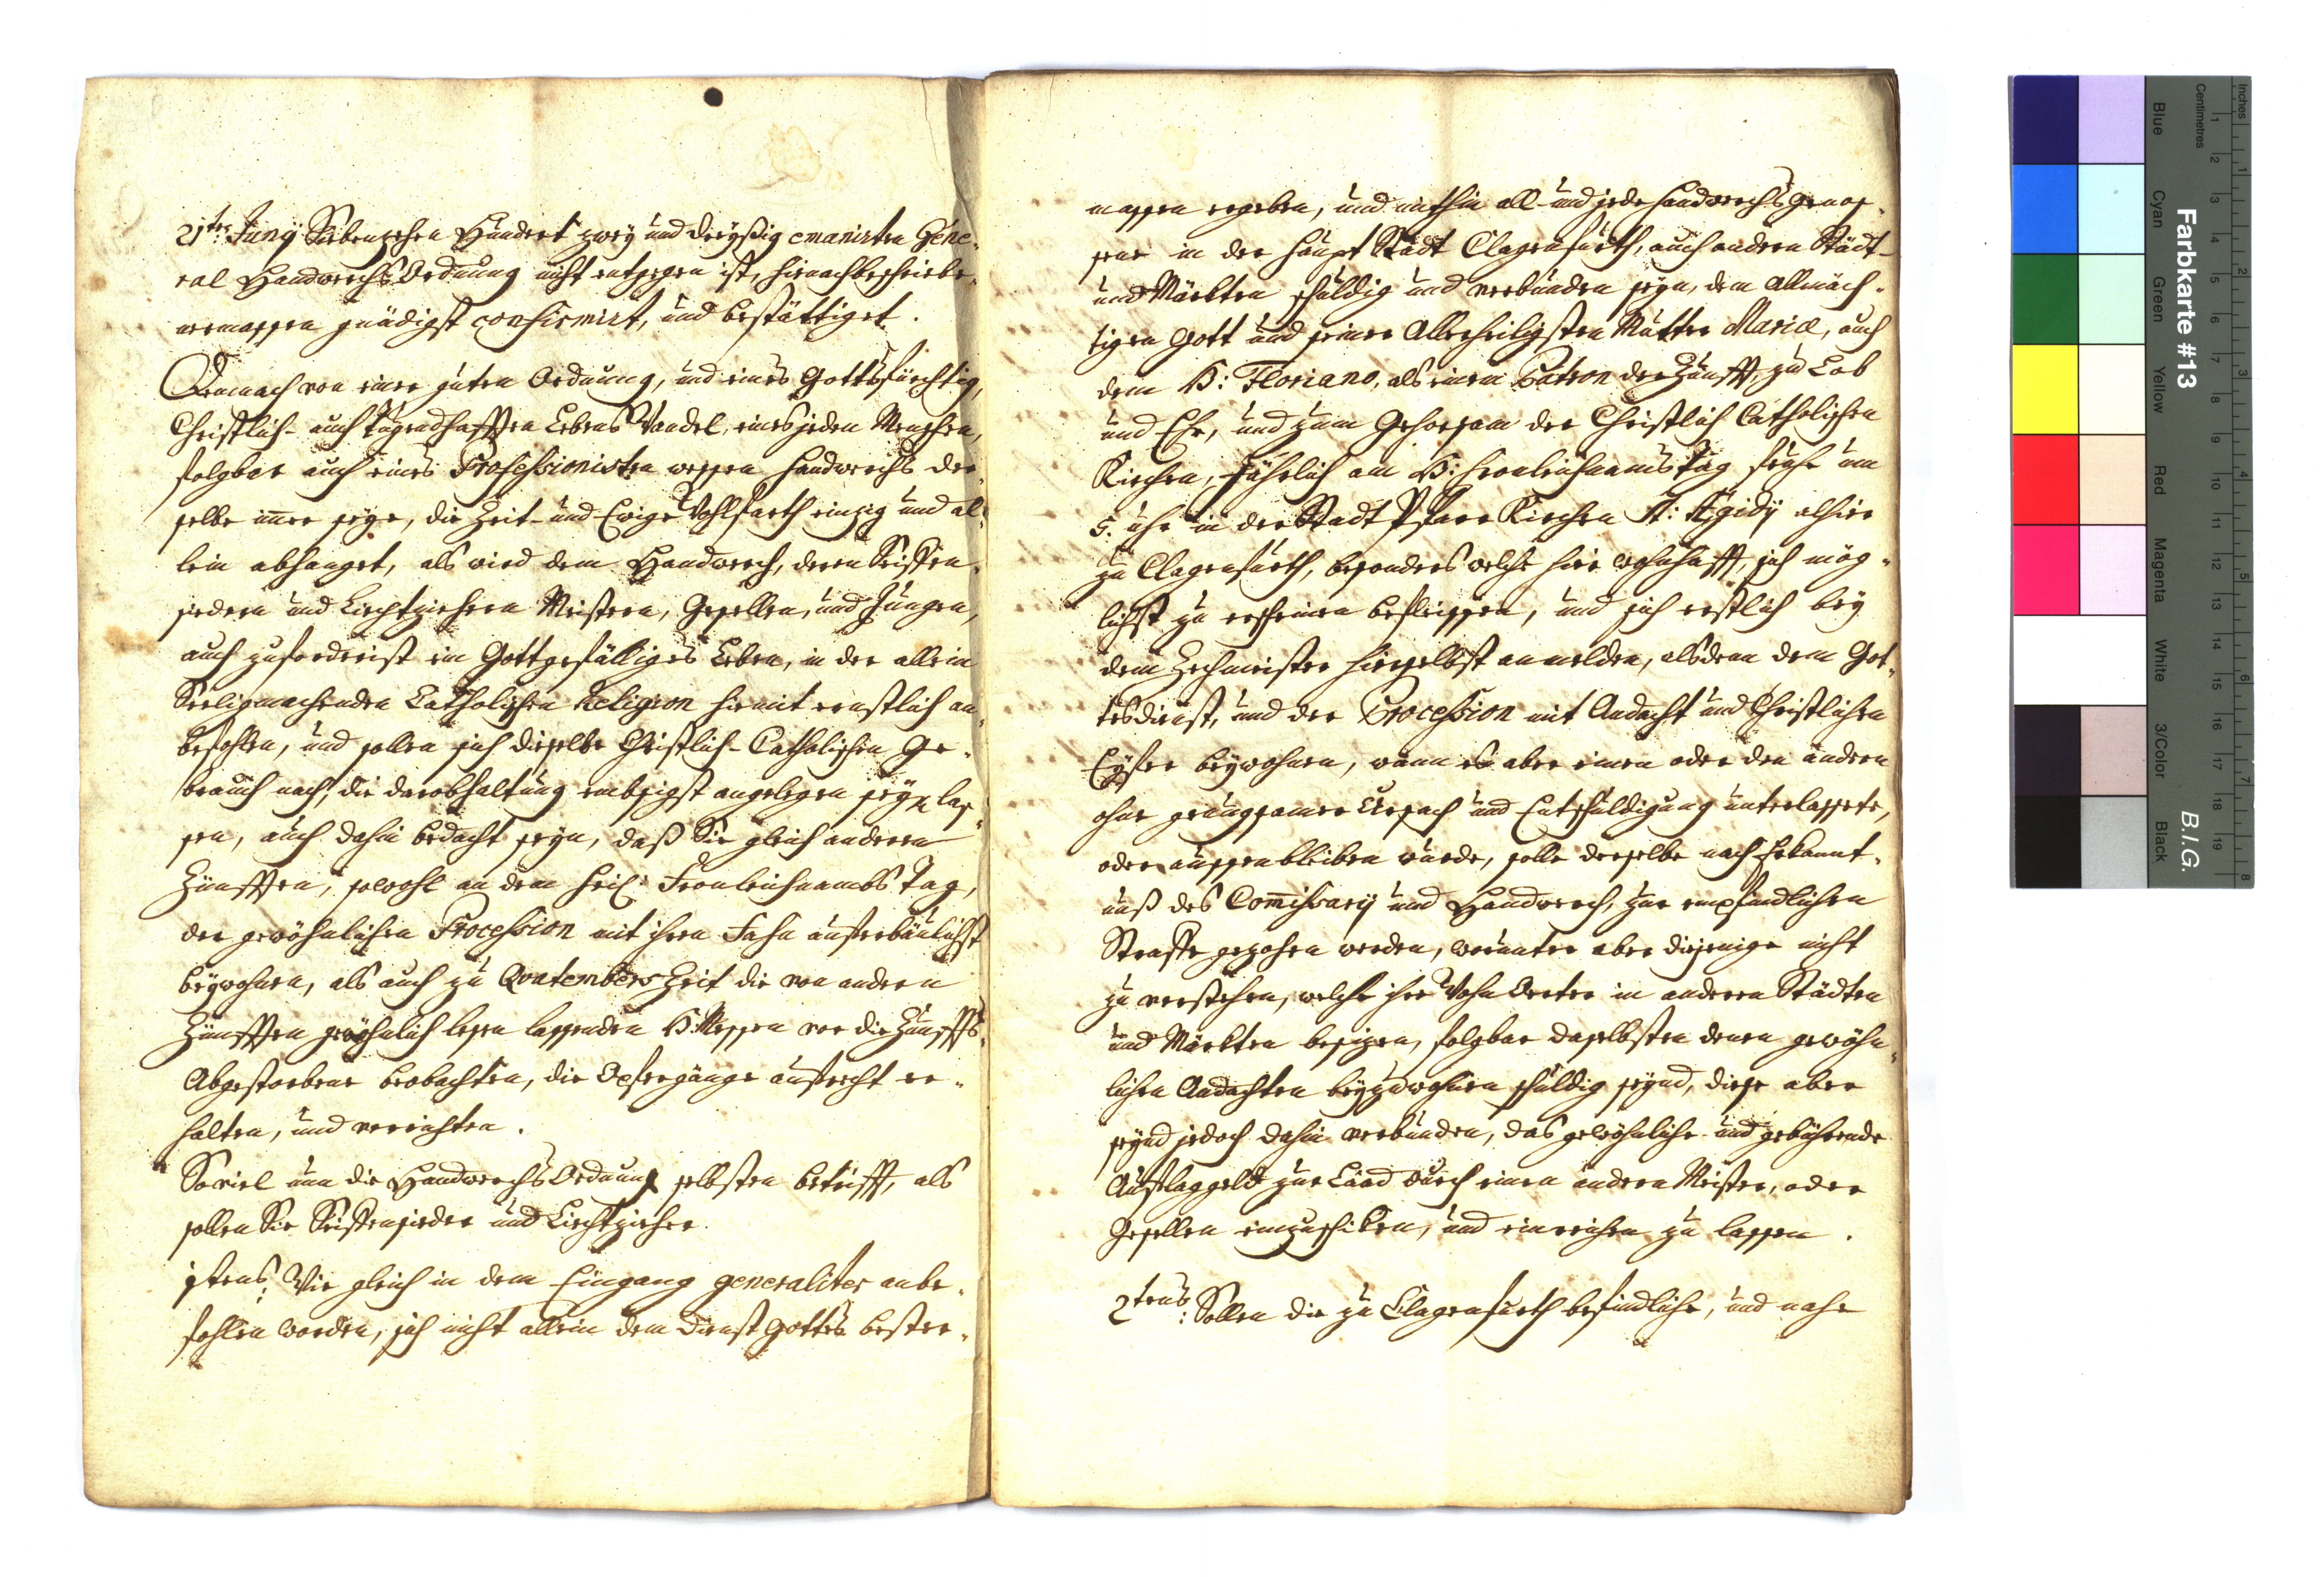 21ten Junÿ Siebenzehen Hundert zweÿ und dreÿßig emanirten Gene-
ral Handwerchs Ordnung nicht entgegen ist, hienachbeschriebe-
nermassen gnädigst confirmirt, und bestättiget.
Demnach von einer guten Ordnung, und eines Gottsförchtig,
Christlich- auch tugendhafften Lebens Wandel, eines jeden Menschen,
folgbar auch eines Professionisten wessen Handwerchs der-
selbe imer seÿe, die Zeit- und Ewige Wohlfarth einzig und al-
lein abhanget, als wird dem Handwerch, deren Seiffen-
siedern und Liechtziehern Meistern, Gesellen, und Jungen,
auch zuforderist ein Gottgefälliges Leben, in der allein
Seeligmachenden Catholischen Religion hiemit ernstlich an-
befohlen, und sollen sich dieselbe Christlich-Catholischen Ge-
brauch nach, die darobhaltung embsigst angelegen seÿn las-
sen, auch dahin bedacht seÿn, daß Sie gleich anderen
Zünfften, sowohl an dem heil: Fronleichnambs Tag,
der gewöhnlichen Procession mit ihren Fahn auferbäulichst
beÿwohnen, als auch zu Quatembers Zeit die von andern
Zünfften gewöhnlich lesen lassenden H: Messen vor die Zunffts-
Abgestorbene beobachten, die Opfergänge aufrecht er-
halten, und verrichten.
Soviel nun die Handwerchs Ordnung selbsten betrifft, als
sollen Sie Seiffensieder und Liechtzieher.
1stens: Wie gleich in dem Eingang generaliter anbe-
fohlen worden, sich nicht allein dem Dienst Gottes bester-
massen ergeben, und mithin all- und jede Handwerchs Genos-
sene in der Haupt Stadt Clagenfurth, auch andern Städt-
und Märkten schuldig und verbunden seÿn, dem Allmäch-
tigen Gott und seiner Allerheiligsten Mutter Mariæ, auch
dem H: Floriano, als einem Patron der Zunfft, zu Lob
und Ehr, und zum Gehorsam der Christlich Catholischen
Kirchen, Jährlich am H: Fronleichnams Tag frühe um
5. Uhr in der Stadt Pfarr Kirchen St: Ægidÿ alhier
zu Clagenfurth, besonders welche hier wohnhafft, sich mög-
lichst zu erscheinen befleissen, und sich erstlich beÿ
dem Zechmeister hierselbst anmelden, alsdenn dem Got-
tesdienst, und der Procession mit Andacht und Christlichen
Eÿfer beÿwohnen, wann es aber einen oder den andern
ohne genungsamer Ursach und Entschuldigung unterlassete,
oder aussenbleiben wurde, solle derselbe nach Erkannt-
nuß des Comissarÿ und Handwerch, zur empfindlichen
Straffe gezohen werden, worunter aber diejenige nicht
zu verstehen, welche ihre Wohn Oerter in anderen Städten
und Märkten besizen, folgbar daselbsten denen gewöhn-
lichen Andachten beÿzuwohnen schuldig seÿnd, diese aber
seÿnd jedoch dahin verbunden, das gewöhnliche und gebührende
Auflaggeld zur Laad durch einen andern Meister, oder
Gesellen einzuschiken, und einreichen zu lassen.
2tens: Sollen die zu Clagenfurth befindliche, und nahe
Farbkarte #13
B.I.G.
Inches
Centimetres
Blue Cyan Green Yellow Red Magenta White 3/Color Black
1 2 3 4 5 6 7 8 9 10 11 12 13 14 15 16 17 18 19
1 2 3 4 5 6 7 8